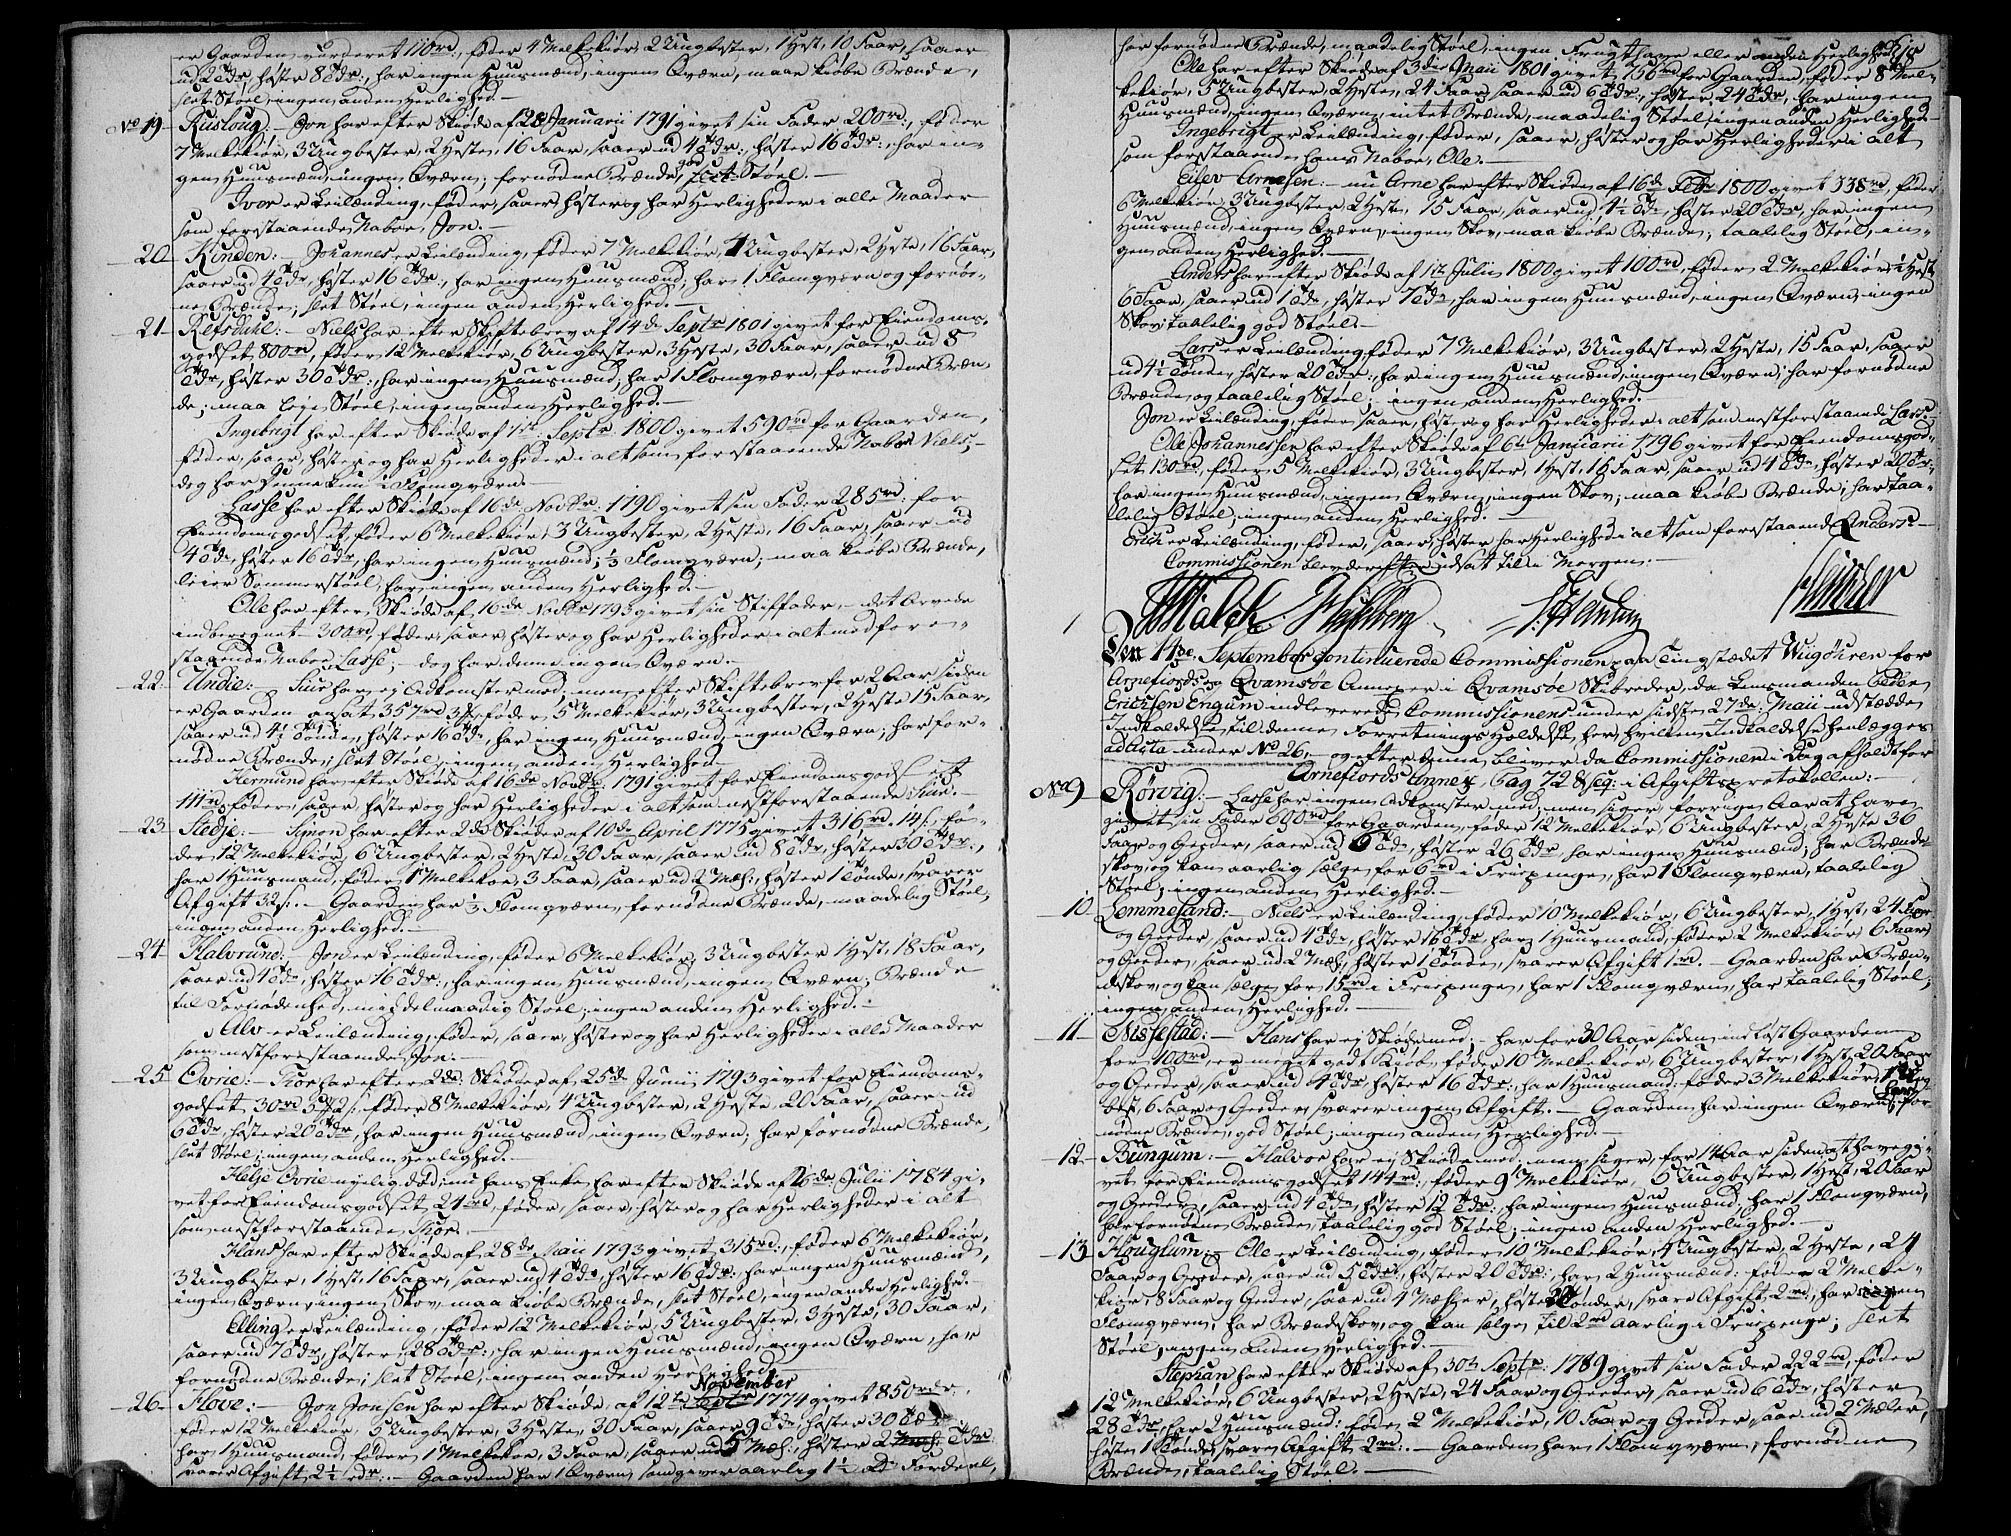 er Gaarden vurderet 110rd:, føder 4 Melkekiør, 2 Ungbester, 1 Hest, 10 Faar, saaer
ud 2 Tdr, høster 8 Tdr:, har ingen Huusmænd, ingen Qværn, maae kiøbe Brænde,
slet Støel, ingen anden Herlighed.-
No 19. Rusloug.- Jon har efter Skiøde af 28 Januarii 1791 givet sin Fader 200rd:, føder
7 Melkekiør, 3 Ungbester, 2 Heste, 16 Faar, saaer ud 4 Tdr:, høster 16 Tdr:, har in-
gen Huusmænd, ingen Qværn; fornødne Brænde, god Støel.-
Iver er Leilænding, føder, saaer, høster og har Herligheder i alle Maader
som forstaaende Naboe, Jon.-
20. Kinden:- Johannes er Leilænding, føder 7 Melkekiør, 4 Ungbester, 2 Heste, 16 Faar,
saaer ud 4 Tdr, høster 16 Tdr:, har ingen Huusmænd, har 1 Flomqværn og fornød-
ne Brænde; slet Støel, ingen anden Herlighed.-
21. Refsdahl:- Niels har efter Skiftebrev af 14de Septr 1801 givet for Eiendoms-
godset 800rd, føder 12 Melkekiør, 6 Ungbester, 3 Heste, 30 Faar, saaer ud 8
Tdr, høster 30 Tdr:, har ingen Huusmænd, har 1 Flomqværn, fornødne Bræn
de; maa leie Støel, ingen anden Herlighed.-
Ingebrigt har efter Skiøde af 1ste Septr: 1800 givet 590rd for Gaarden,
føder, saaer, høster og har Herligheder i alt som forstaaende Naboe Niels;-
dog har denne kun Flomqværn.-
Lasse har efter Skiøde af 16de Novbr: 1790 givet sin Fader 285rd: for
Eiendomsgodset, føder 6 Melkekiør, 3 Ungbester, 2 Heste, 16 Faar, saaer ud
4 Tdr, høster 16 Tdr, har ingen Huusmænd, 1/3 Flomqværn, maa kiøbe Brænde,
leier Sommerstøel, har ingen anden Herlighed.-
Ole har efter Skiøde af 16de Novbr 1793 givet sin Stiffader,- det Arvede
indberegnet - 300rd, føder, saaer, høster og har Herligheder i alt med fore-
staaende Naboe Lasse;- dog har denne ingen Qværn.-
22. Undie:- Siur har ej Adkomster med, men efter Skiftebrev for 2 Aar siden
er Gaarden ansat 357rd 3, føder 5 Melkekiør, 3 Ungbester, 2 Heste 15 Faar,
saaer ud 4½ Tønde, høster 16 Tdr, har ingen Huusmænd, ingen Qværn; har for-
nødne Brænde; slet Støel, ingen anden Herlighed.-
Hermund har efter Skiøde af 16de Novbr: 1791 givet for Eiendomsgodset
111rd, føder, saaer, høster og har Herligheder i alt som nestforstaaende Siur.-
23. Stedje:- Simon har efter 2de Skiøder af 10de April 1775 givet 316rd. 14 s:, fø-
der 12 Melkekiør, 6 Ungbester, 2 Heste, 30 Faar, saaer ud 8 Tdr, høster 30 Tdr:,
har 1 Huusmand, føder 1 Melkekoe, 3 Faar, saaer ud 2 Mæh:, høster 1 Tønde, svarer
Afgift 32 s:.- Gaarden har 1/3 Flomqværn, fornødne Brænde, maadelig Støel,
ingen anden Herlighed.-
24. Halvrund:- Jon er Leilænding, føder 6 Melkekiør, 3 Ungbester 1 Hest, 18 Faar,
saaer ud 4 Tdr, høster 16 Tdr:, har ingen Huusmænd, ingen Qværn; Brænde
til Fornødenhed, middelmaadig Støel, ingen anden Herlighed.-
Alv er Leilænding, føder, saaer, høster og har Herligheder i alle Maader
som nestforstaaende Jon.-
25. Ovrie:- Thor har efter 2de: Skiøder af 25de Junii 1793 givet for Eiendoms-
godset 30rd 3 2 s: føder 8 Melkekiør, 4 Ungbester, 2 Heste, 20 Faar, saaer ud
6 Tdr, høster 20 Tdr, har ingen Huusmænd, ingen Qværn; har fornødne Brænde,
slet Støel; ingen anden Herlighed.-
Helje Ovrie nyelig død; nu hans Enke, har efter Skiøde af 26de: Julii 1784 gi-
vet for Eiendomsgodset 24rd, føder, saaer, høster og har Herligheder i alt
som nestforstaaende Thor.-
Hans har efter Skiøde af 28de Maii 1793 givet 315rd:, føder 6 Melkekiør,
3 Ungbester, 1 Hest, 16 Faar, saaer ud 4 Tdr, høster 16 Tdr:, har ingen Huusmænd,
ingen Qværn, ingen Skov, maa kiøbe Brænde, slet Støel, ingen anden Herlighed.-
Elling er Leilænding, føder 12 Melkekiør, 5 Ungbester, 3 Heste, 30 Faar,
saaer ud 7 Tdr, høster 28 Tdr:, har ingen Huusmænd, ingen Qværn, har
fornødne Brænde; slet Støel, ingen anden Herlighed.
November
26. Hove:- Jon Jonsen har efter Skiøde af 12te Septr 1774 givet 850rdr.
føder 12 Melkekiør, 5 Ungbester, 3 Heste, 30 Faar, saaer 9 Tdr, høster 30 Tdr:
har 1 Huusmand, føder 1 Melkekoe, 3 Faar, saaer ud 5 Mæh:, høster 2 Mæh: Tdr:
svarer Afgift 2½ rdr:.- Gaarden har 1 Qværn, som giver aarlig 1½ rd Fordeel,
har fornødne Brænde, maadelig Støel, ingen Frugthave eller anden Herlighed.
Ole har efter Skiøde af 3die Maii 1801 givet 756rd for Gaarden, føder 8 Mel-
kekiør, 5 Ungbester, 2 Heste, 24 Faar, saaer ud 6 Tdr:, høster 24 Tdr, har ingen
Huusmænd, ingen Qværn, intet Brænde, maadelig Støel, ingen anden Herlighed.-
Ingebrigt er Leilænding, føder, saaer, høster og har Herligheder i alt
som forstaaende hans Naboe, Ole.-
Eilev Arnesen:- nu Arne har efter Skiøde af 16de Febr 1800 givet 338rd, føder
6 Melkekiør, 3 Ungbester, 2 Heste, 15 Faar, saaer ud 4½ Tdr, høster 20 Tdr, har ingen
Huusmænd, ingen Qværn, ingen Skov, maa kiøbe Brænde; taalelig Støel, in-
gen anden Herlighed.-
Anders har efter Skiøde af 1ste Julii 1800 givet 100rd, føder 2 Melkekiør, 1 Hest
6 Faar, saaer ud 1 Tdr, høster 7 Tdr, har ingen Huusmænd, ingen Qværn, ingen
Skov, taalelig god Støel.-
Lars er Leilænding, føder 7 Melkekiør, 3 Ungbester, 2 Heste, 15 Faar, saaer
ud 4½ Tønde, høster 20 Tdr:, har ingen Huusmænd, ingen Qværn; har fornødne
Brænde og taalelig Støel; ingen anden Herlighed.-
Jon er Leilænding, føder, saaer, høster og har Herligheder i alt som nestforstaaende Lars.-
Ole Johannessen har efter Skiøde af 6te Januarii 1796 givet for Eiendomsgod-
set 130rd:, føder 5 Melkekiør, 3 Ungbester, 1 Hest, 16 Faar, saaer ud 4 Tdr, høster 20 Tdr:
har ingen Huusmænd, ingen Qværn, ingen Skov; maa kiøbe Brænde; har taa-
lelig Støel, ingen anden Herlighed.-
Erich er Leilænding, føder, saaer, høster har Herlighed i alt som forstaaende Anders.-
Commissionen blev derefter udsat til i Morgen.-
Den 11de September Continuerede Commissionen paa Tingstædet Wugøhren for
Arnefiords og Qvamsøe Annexer i Qvamsøe Skibreder, da Lensmanden Peder
Erichsen Engum indleverede Commissionens under sidste 27de: Maii udstædde
Indkaldelse til denne Forretnings Holdelse her, hvilken Indkaldelse henlægges
ad Acta under No 26.- og efter denne bliver da Commissionen i Dag afholdt for
Arnefiords Annex, Pag 72 & seq: i Afgiftsprotokollen:-
No 9. Rørvig:- Lasse har ingen Adkomster med, men siger forrige Aar at have
givet sin Fader 690rd for Gaarden, føder 12 Melkekiør, 6 Ungbester, 2 Heste 36
Faar og Geeder, saaer ud 6 Tdr, høster 26 Tdr, har ingen Huusmænd; har Brænde-
skov, og kan aarlig sælge for 6rd i Friepenge, har 1 Flomqværn, taalelig
Støel; ingen anden Herlighed.-
10. Lemmesand:- Niels er Leilænding, føder 10 Melkekiør, 6 Ungbester, 1 Hest, 24 Faar
og Geeder, saaer ud 4 Tdr, høster 16 Tdr, har 1 Huusmand, føder 2 Melkekiør 6 Faar
og Geeder, saaer ud 2 Mæh:, høster 1 Tønde, svarer Afgift 1rd.- Gaarden har Bræn-
deskov, og kan sælge for 15rd i Friepenge, har 1 Flomqværn, har taalelig Støel;
ingen anden Herlighed.-
11. Nissestad:- Hans har ej Skiøde med,- har for 30 Aar siden indløst Gaarden
for 100rd, er meget godt Kiøb, føder 10 Melkekiør, 6 Ungbester, 1 Hest, 20 Faar
og Geeder, saaer ud 4 Tdr, høster 16 Tdr:, har 1 Huusmand: føder 3 Melkekiør, 1 Ung
best, 6 Faar og Geeder, svarer ingen Afgift.- Gaarden har ingen Qværn, har for
nødne Brænde, god Støel; ingen anden Herlighed.-
12. Bungum:- Halvor har ej Skiøde med; men siger, for 14 Aar siden at have gi-
vet for Eiendomsgodset 144rd:, føder 9 Melkekiør, 5 Ungbester, 1 Hest, 20 Faar
og Geeder, saaer ud 4 Tdr, høster 12 Tdr:, har ingen Huusmænd, har 1 Flomqværn,
har fornødne Brænde, taalelig god Støel; ingen anden Herlighed.-
13. Houglum:- Ole er Leilænding, føder 10 Melkekiør, 4 Ungbester, 2 Heste, 24
Faar og Geeder, saaer ud 5 Tdr:, høster 20 Tdr:, har 2 Huusmænd: føder 2 Melke-
kiør, 8 Faar og Geeder, saar ud 4 Mæhler, høster Tønder, svare Afgift 2rd, har ingen
Flomqværn, har Brændeskov, og kan sælge til 2rd aarlig i Friepenge; slet
Støel, ingen anden Herlighed.-
Stephan har efter Skiøde af 30te Septr: 1789 givet sin Fader 222rd, føder
12 Melkekiør, 6 Ungbester, 2 Heste, 24 Faar og Geeder, saaer ud 6 Tdr, høster
28 Tdr, har 2 Huusmænd: føder 2 Melkekiør, 10 Faar og Geeder, saar ud 2 Mæler,
høste 1 Tønde, svare Afgift 2rd:.- Gaarden har 1 Flomqværn, fornødne
Brænde, taalelig Støel.-